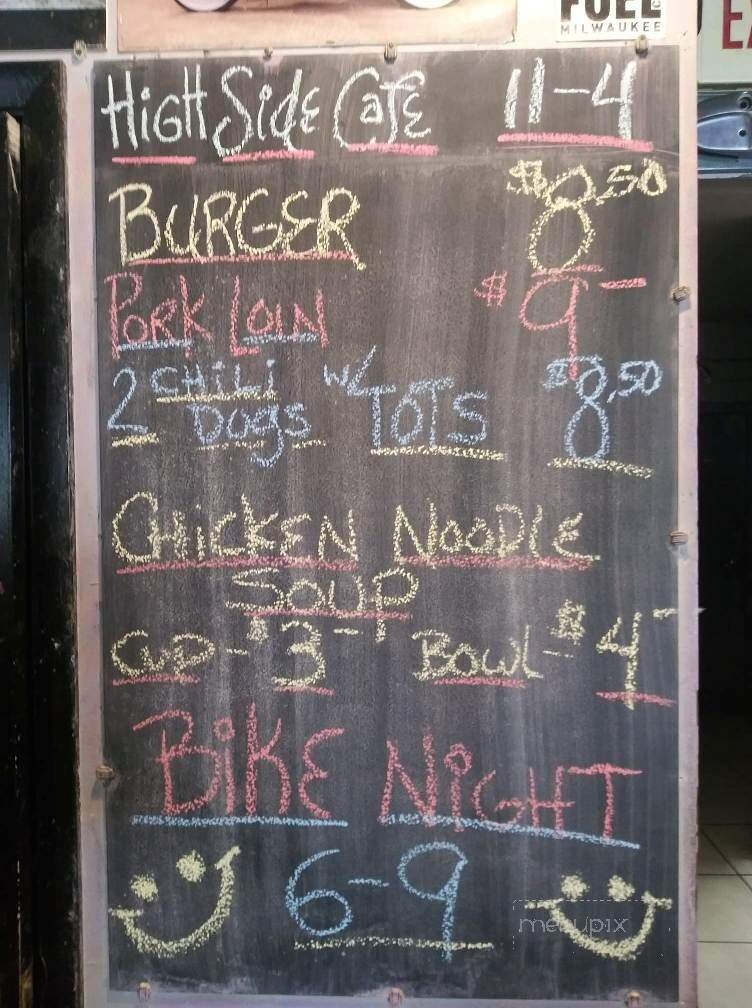 FUEL
MILWAUKEE
HiGH SidE CafE 11-4
BURGER $8.50
PORK LOiN $9-
2 CHiLi DOgS w/ TOTS $8.50
CHiCKEN NOODLE
SOUP
CUP-$3- BOWL-$4-
BiKE NiGHT
6-9
menupix